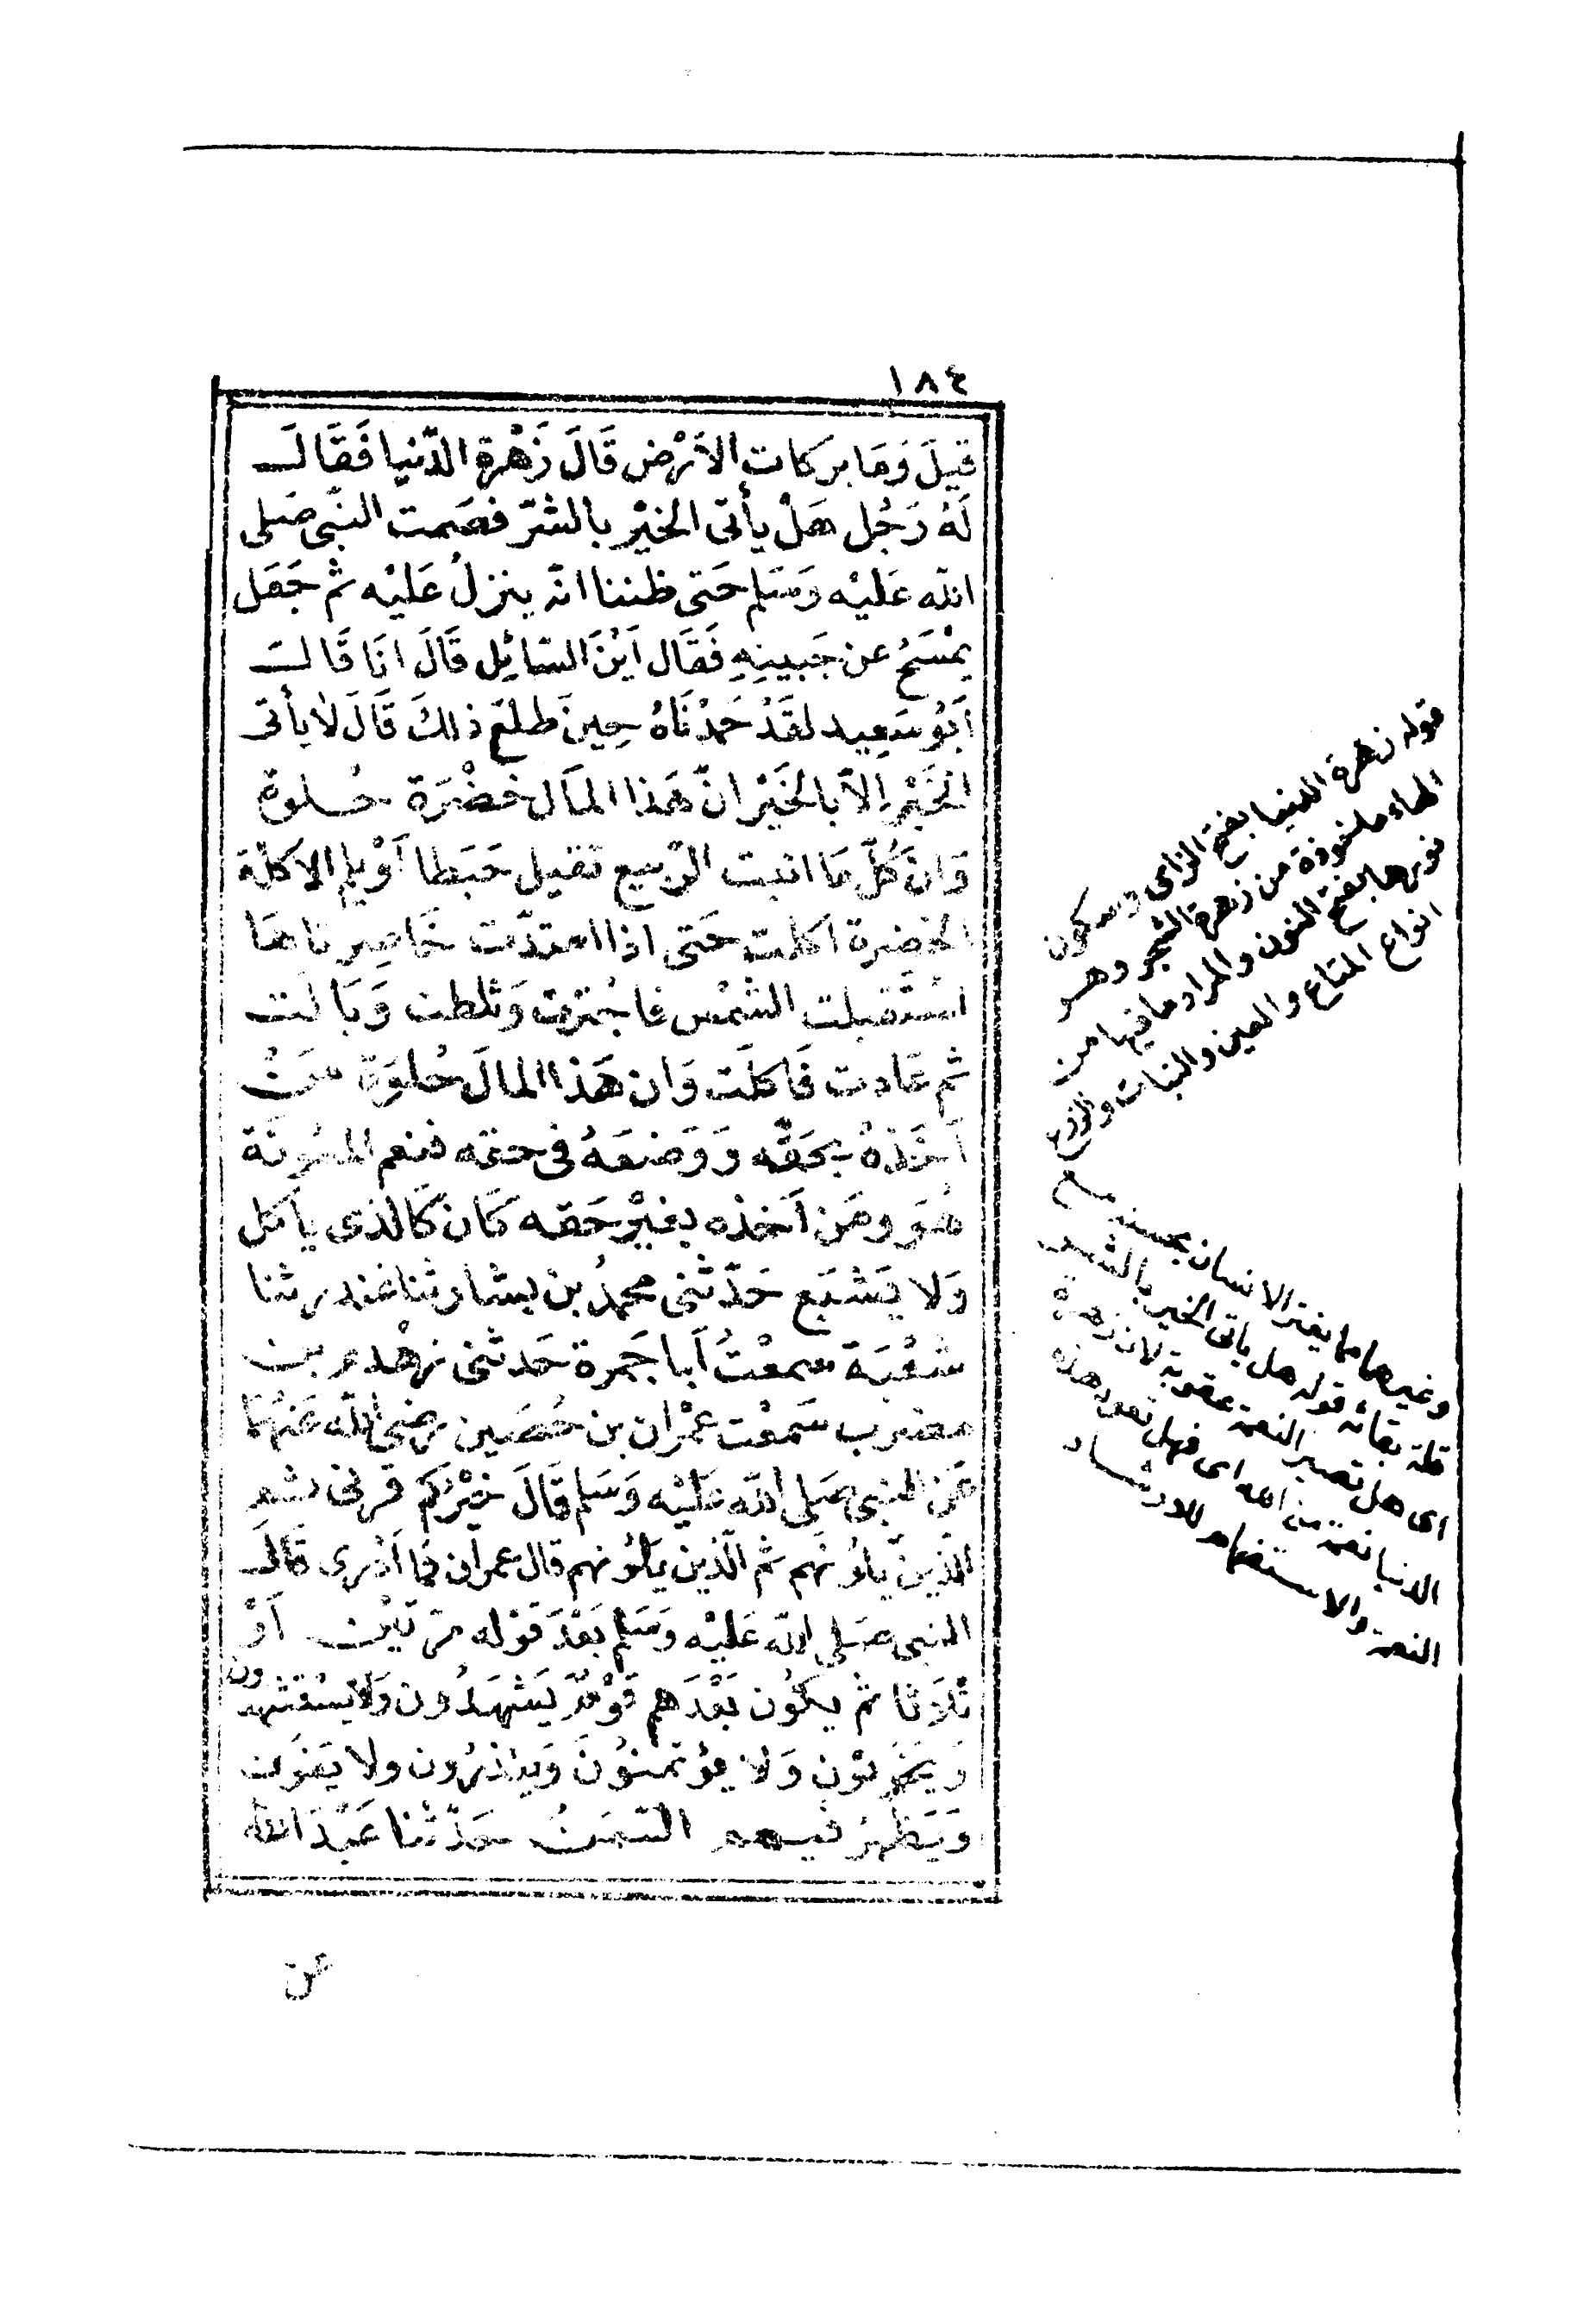 ١٨٤
قيلَ وَمَا بركات الاَرْض قَالَ زَهْرة الدّنيا فَقَالَ
لَهُ رَجُل هَلْ يأتى الخيْر بالشرّ فصَمت النّبى صَلى
الله عَليْه وَسَلم حَتى ظننا انّه ينزلُ عَليْه ثم جَعَل
يمْسَحُ عن جَبينِهِ فَقَال اَيْنَ السّائِل قَالَ انَا قَالَ
اَبُو سَعِيد لقَدْ حَمدْنَاهُ حِينَ طلعَ ذلكَ قَالَ لا يأتى
الخَيْر اِلاّ بالخَيْر انّ هَذا المَال خضْرَة حُلوة
وَانّ كُلّ مَا انبت الرّبيع تقيل حَبَطا اَوْ يلم الا كلة
الخضرة اكلت حَتى اذا امتدّت خَاصرتاهَا
اسْتَقبلت الشمْس فاجْترت وَثلطت وَبَالت
ثم عَادت فَاكلَت وَان هَذا المالَ حُلوَة مَنْ
اَخَذهُ بحَقّه وَوَضعَهُ فى حقه فنعم المعُونَة
هُوَ ومَن اَخذه بغيْر حَقه كَان كَالذى يأكل
وَلا يَشبَع حَدّثنى محمدُ بن بشار ثنا غندر ثنا
شعْبَة سمعْتُ اَبا جَمرة حَدثنى زهْدم بن
مضرب سَمعْت عمْران بن حُصَين رضى الله عَنْهُما
عَن النبى صَلى الله عَليْه وَسَلم قَالَ خيْركم قرنى ثم
الّذينَ يَلُونَهم ثم الّذين يَلُونهم قال عمران فما اَدْرى قَالَ
النبى صَلى الله عَليْه وَسَلم بَعْدَ قوْله مرّتيْن اَوْ
ثلَاثا ثم يكُون بَعْدَهم قوْمٌ يَشهَدُون وَلا يسْتشهدون
وَيخُونون وَلا يؤتمنُونَ وَينذرُون ولا يَفُون
وَيَظهرُ فيهم السّمَنُ حَدّثنا عَبْدَ الله
عن
قوله زهرة الدنيا بفتح الزاى وسكون
الهاء ماخوذة من زهرة الشجر وهو
نورها بفتح النون والمراد ما فيها من
انواع المتاع والعين والنبات والزرع
وغيرها مما يغتر الانسان بحسنه مع
قلة بقائه قوله هل ياتى الخير بالشر
اى هل تصير النعمة عقوبة لان زهرة
الدنيا نعمة من الله اى فهل تعود هذه
النعمة والاستفهام للارشاد